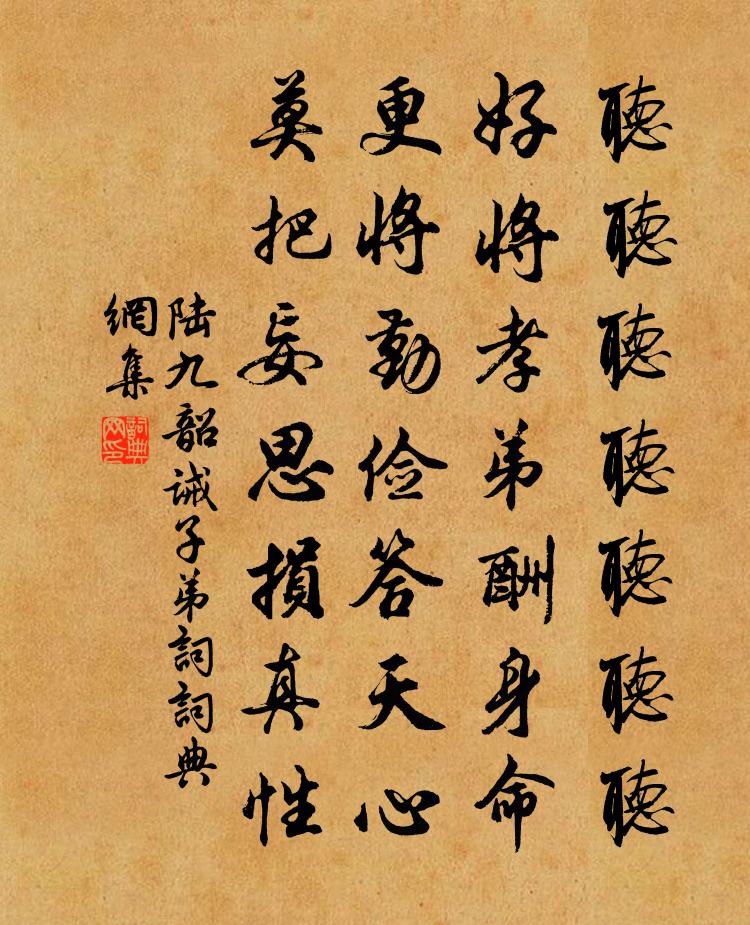 聽聽聽聽聽聽聽
好將孝弟酬身命
更將勤儉答天心
莫把妄思損真性
陸九韶誡子弟詞詞典
網集
詞典
网印